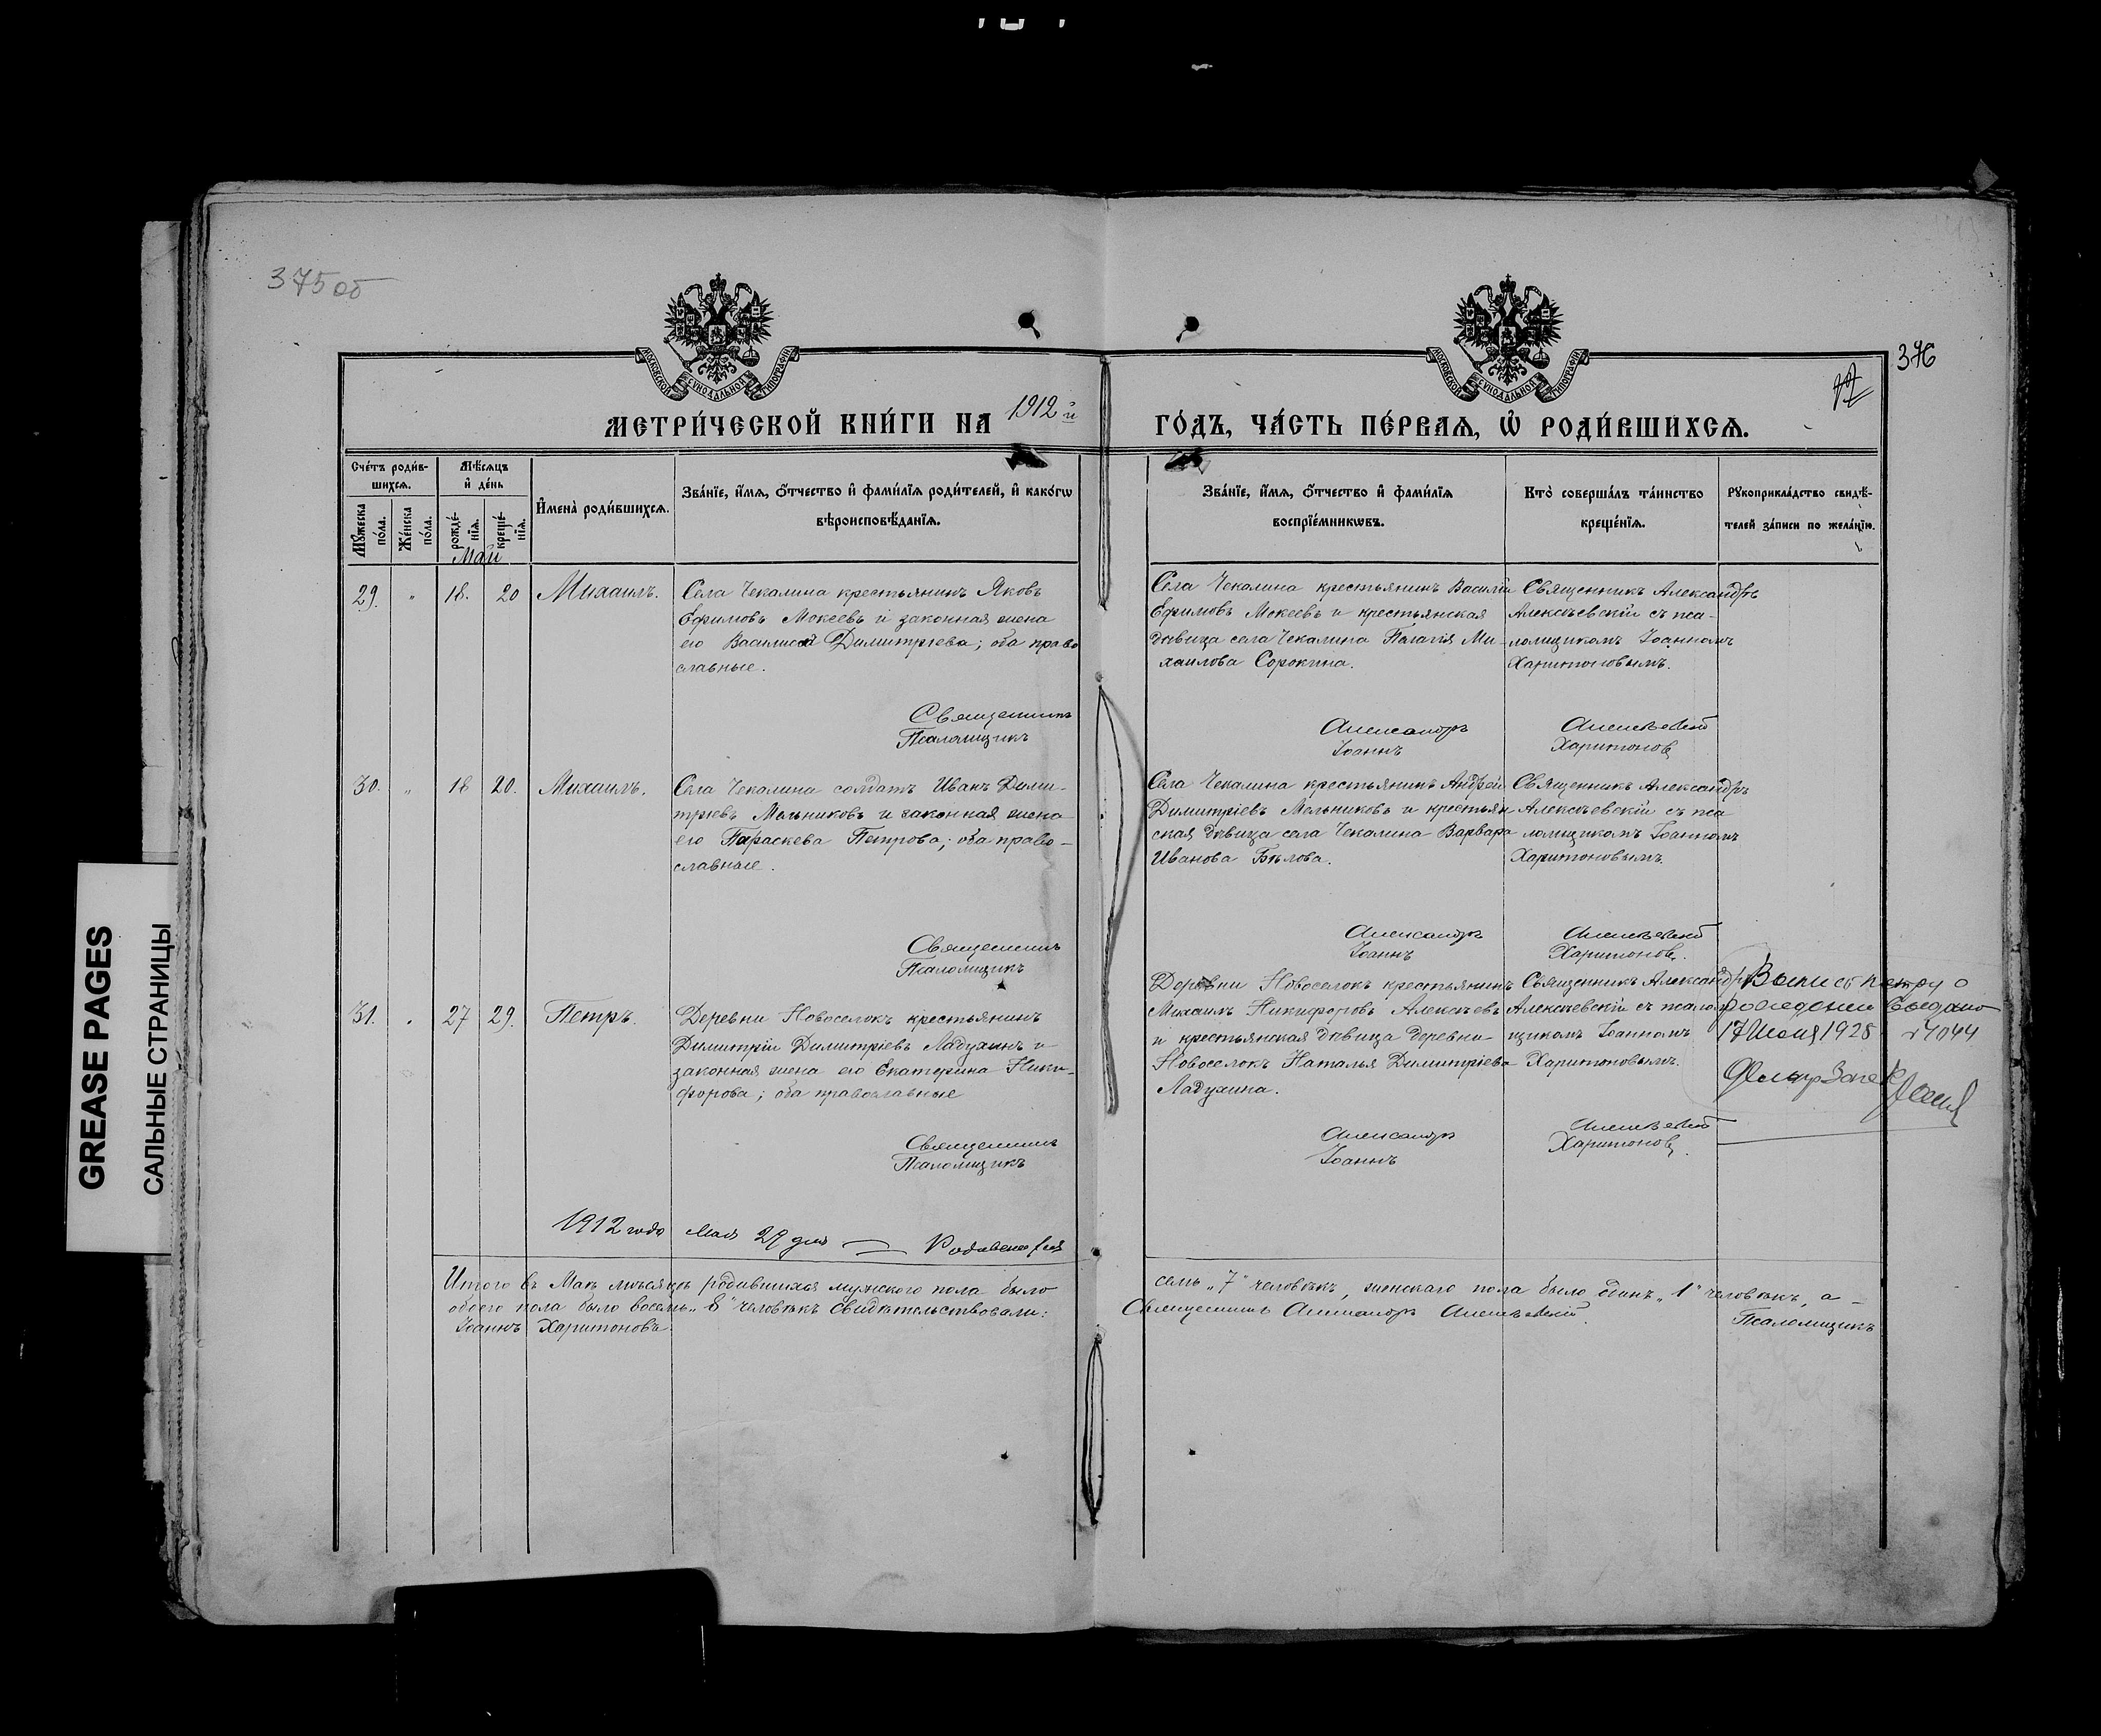 375об
376
МОСКОВСКОЙ СѴНОДАЛЬНОЙ ТИПОГРАФІИ
МОСКОВСКОЙ СѴНОДАЛЬНОЙ ТИПОГРАФІИ
МЕТРИ́ЧЕСКОЙ КНИ́ГИ НА 1912 й ГО́ДЪ, ЧА́СТЬ ПЕ́РВАЯ, Ѡ҆ РОДИ́ВШИХСЯ.
Сче́тъ роди́в-
шихся.
Мꙋ́жеска по́ла.
Же́нска по́ла.
Мѣ́сяцъ
и҆ де́нь
рожде́-
нїя.
креще́-
нїя.
И҆мена̀ роди́вшихся.
Зва́нїе, и҆́мя, ѻ҆́тчество и҆ фами́лїя роди́телей, и҆ како́гѡ
вѣроисповѣ́данїя.
Зва́нїе, и҆́мя, ѻ҆́тчество и҆ фами́лїя
воспрїе́мникѡвъ.
Кто̀ соверша́лъ та́инство
креще́нїя.
Рꙋкоприкла́дство свидѣ́-
телей за́писи по жела́нїю.
Май
29. " 18. 20 Михаилъ.
Села Чекалина крестьянинъ Яковъ
Ефимовъ Мокеевъ и законная жена
его Василиса Димитріева; оба право
славные.
Села Чекалина крестьянинъ Василій
Ефимовъ Мокеевъ и крестьянская
дѣвица села Чекалина Пелагія Ми-
хаилова Сорокина.
Священникъ Александръ
Алексѣевскій съ пса-
ломщикомъ Іоанномъ
Харитоновымъ.
Священникъ Александръ Алексѣевскій
Псаломщикъ Іоаннъ Харитоновъ
30. " 18 20. Михаилъ.
Села Чекалина солдатъ Иванъ Дими-
тріевъ Мельниковъ и законная жена
его Параскева Петрова; оба право-
славные.
Села Чекалина крестьянинъ Андрей
Димитріевъ Мельниковъ и крестьян
ская дѣвица села Чекалина Варвара
Иванова Бѣлова.
Священникъ Александръ
Алексѣевскій съ пса
ломщикомъ Іоанномъ
Харитоновымъ.
Священникъ Александръ Алексѣевскій
Псаломщикъ Іоаннъ Харитоновъ.
31. " 27 29. Петръ.
Деревни Новоселокъ крестьянинъ
Димитрій Димитріевъ Ладухинъ и
законная жена его Екатерина Ники-
форова; оба православные
Деревни Новоселокъ крестьянинъ
Михаилъ Никифоровъ Алексѣевъ
и крестьянская дѣвица деревни
Новоселокъ Наталья Димитріева
Ладухина.
Священникъ Александръ
Алексѣевскій съ псалом
щикомъ Іоанномъ
Харитоновымъ.
Выпись Петру о
рождении выдано
17 Июля 1928 № 4044
Священникъ Александръ Алексѣевскій
Псаломщикъ Іоаннъ Харитоновъ.
1912 года мая 29 дня
Итого въ Маѣ мѣсяцѣ родившихся мужского пола было семь „7" человѣкъ, женскаго пола было одинъ „1" человѣкъ, а-
обоего пола было восемь „8" человѣкъ Свидѣтельствовали: Священникъ Александръ Алексѣевскій. Псаломщикъ
Іоаннъ Харитоновъ.
GREASE PAGES
САЛЬНЫЕ СТРАНИЦЫ